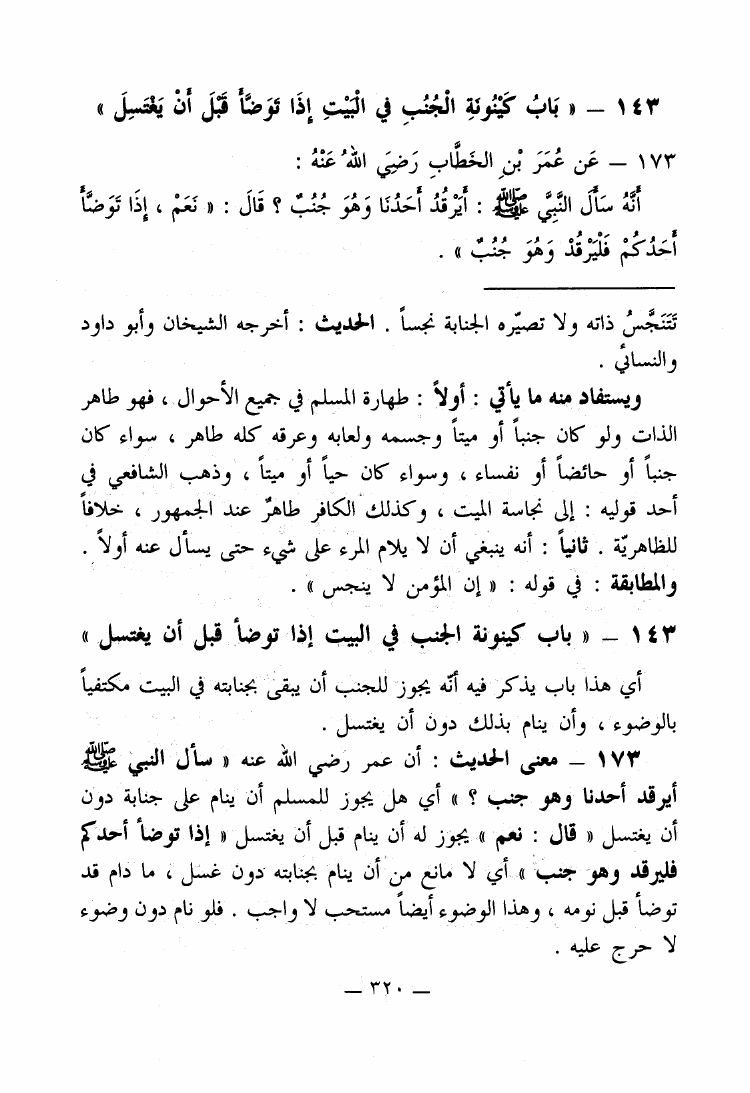 ١٤٣ – « بَابُ كَيْنُونَةِ الْجُنُبِ في الْبَيْتِ إِذَا تَوَضَّأَ قَبْلَ أَنْ يَغْتَسِلَ »
١٧٣ – عَن عُمَرَ بْنِ الخَطَّابِ رَضِيَ اللهُ عَنْهُ :
أَنَّهُ سَأَلَ النَّبِيَّ ﷺ : أَيَرْقُدُ أَحَدُنَا وَهُوَ جُنُبٌ ؟ قَالَ : « نَعَمْ ، إِذَا تَوَضَّأَ
أَحَدُكُمْ فَلْيَرْقُدْ وَهُوَ جُنُبٌ » .
تَتَنَجَّسُ ذاته ولا تصيّره الجنابة نجساً . الحديث : أخرجه الشيخان وأبو داود
والنسائي .
ويستفاد منه ما يأتي : أولاً : طهارة المسلم في جميع الأحوال ، فهو طاهر
الذات ولو كان جنباً أو ميتاً وجسمه ولعابه وعرقه كله طاهر ، سواء كان
جنباً أو حائضاً أو نفساء ، وسواء كان حياً أو ميتاً ، وذهب الشافعي في
أحد قوليه : إلى نجاسة الميت ، وكذلك الكافر طاهرٌ عند الجمهور ، خلافاً
للظاهريّة . ثانياً : أنه ينبغي أن لا يلام المرء على شيء حتى يسأل عنه أولاً .
والمطابقة : في قوله : « إن المؤمن لا ينجس » .
١٤٣ – « باب كينونة الجنب في البيت إذا توضأ قبل أن يغتسل »
أي هذا باب يذكر فيه أنّه يجوز للجنب أن يبقى بجنابته في البيت مكتفياً
بالوضوء ، وأن ينام بذلك دون أن يغتسل .
١٧٣ – معنى الحديث : أن عمر رضي الله عنه « سأل النبي ﷺ
أيرقد أحدنا وهو جنب ؟ » أي هل يجوز للمسلم أن ينام على جنابة دون
أن يغتسل « قال : نعم » يجوز له أن ينام قبل أن يغتسل « إذا توضأ أحدكم
فليرقد وهو جنب » أي لا مانع من أن ينام بجنابته دون غسل ، ما دام قد
توضأ قبل نومه ، وهذا الوضوء أيضاً مستحب لا واجب . فلو نام دون وضوء
لا حرج عليه .
– ٣٢٠ –